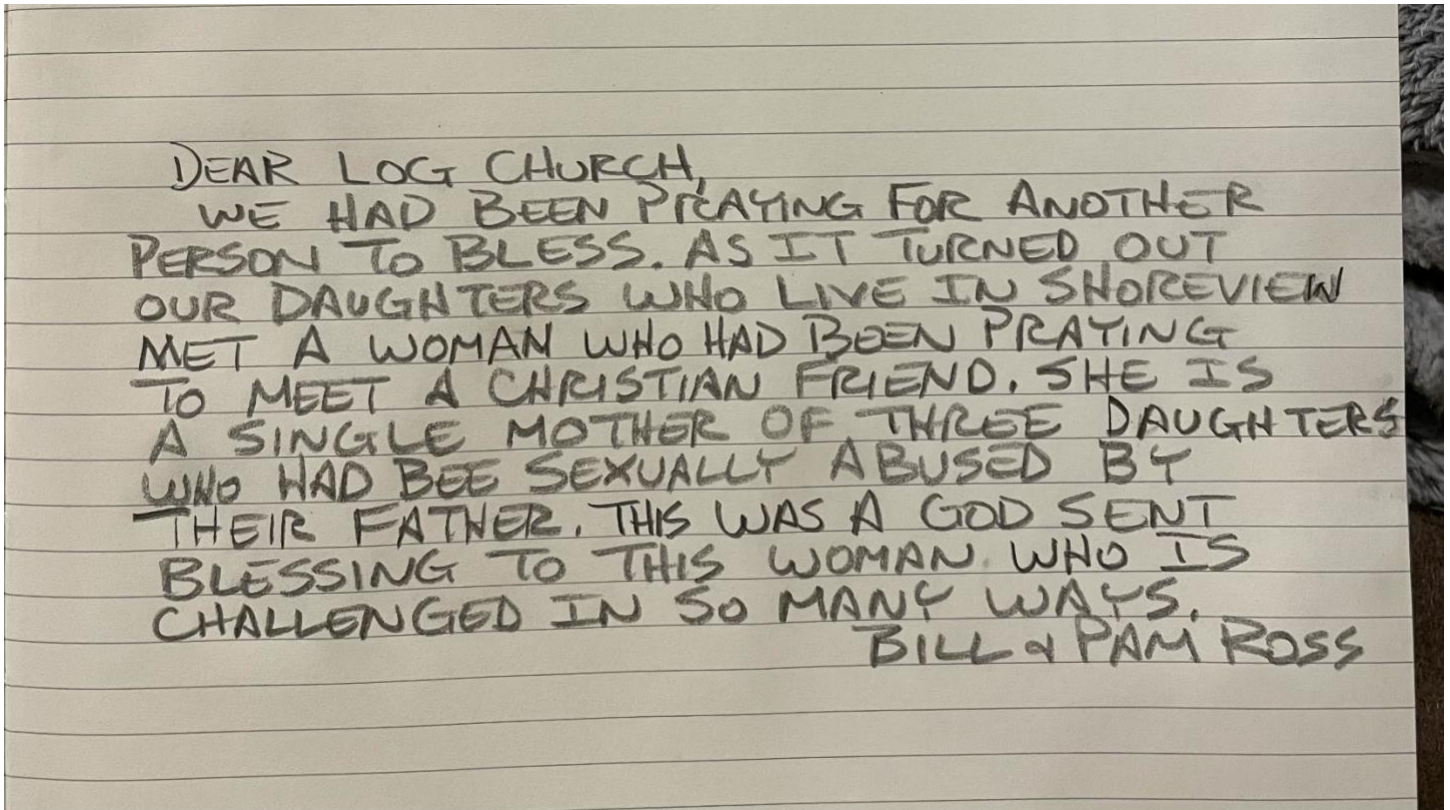 DEAR LOG CHURCH,
WE HAD BEEN PRAYING FOR ANOTHER
PERSON TO BLESS. AS IT TURNED OUT
OUR DAUGHTERS WHO LIVE IN SHOREVIEW
MET A WOMAN WHO HAD BEEN PRAYING
TO MEET A CHRISTIAN FRIEND. SHE IS
A SINGLE MOTHER OF THREE DAUGHTERS
WHO HAD BEE SEXUALLY ABUSED BY
THEIR FATHER. THIS WAS A GOD SENT
BLESSING TO THIS WOMAN WHO IS
CHALLENGED IN SO MANY WAYS.
BILL & PAM ROSS